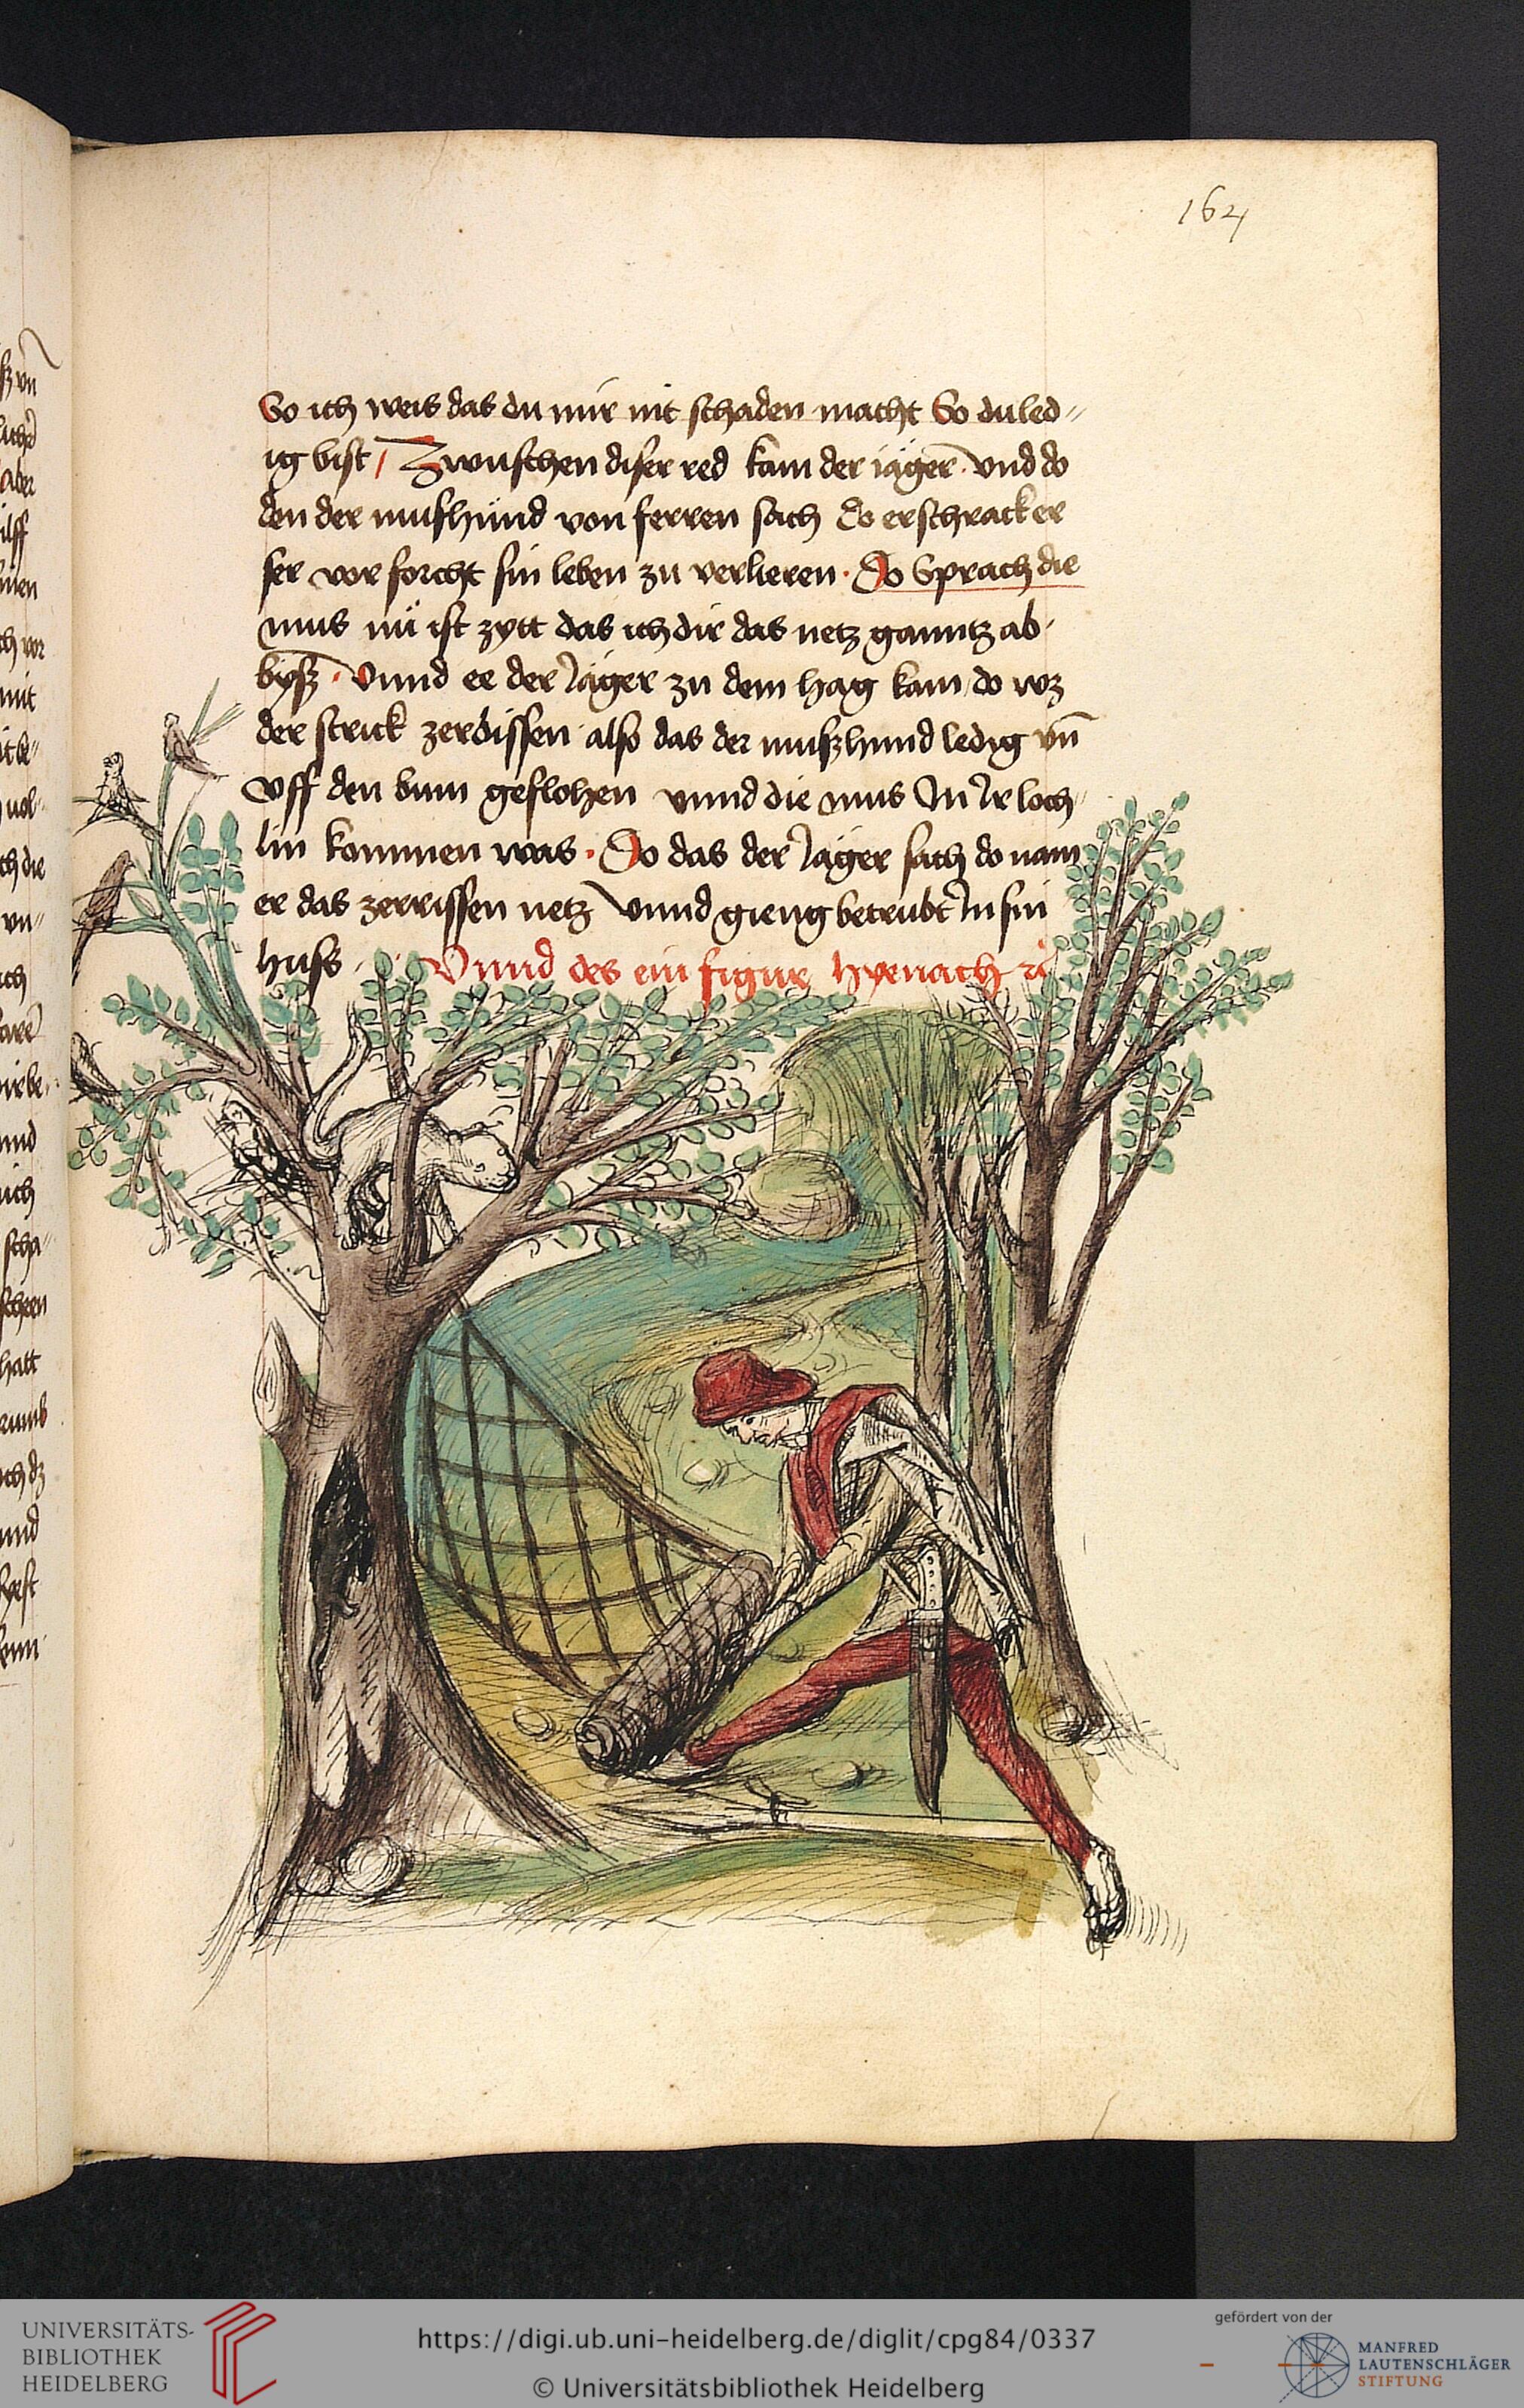 164
So ich weis das du mir nit schaden macht So du led〃
ig bist / Zwuschen diser red kam der iäger. vnd do
den der mushund von ferren sach Do erschrack er
ser vor forcht sin leben zu verlieren. Do Sprach die
mus nü ist zytt das ich dir das netz ganntz ab
byss. Vnnd ee der Jäger zu dem hag kam / do wz
der strick zerbissen also das der mußhund ledig vn̄
vff den bum geflohen vnnd die mus In Ir loch
lin kommen was. Do das der Jäger sach do nam
er das zerrissen netz Vnnd gieng betrübt In sin
huss. Vnnd des ein figur hyenach
UNIVERSITÄTS-
BIBLIOTHEK
HEIDELBERG
https://digi.ub.uni-heidelberg.de/diglit/cpg84/0337
© Universitätsbibliothek Heidelberg
gefördert von der
MANFRED
LAUTENSCHLÄGER
STIFTUNG